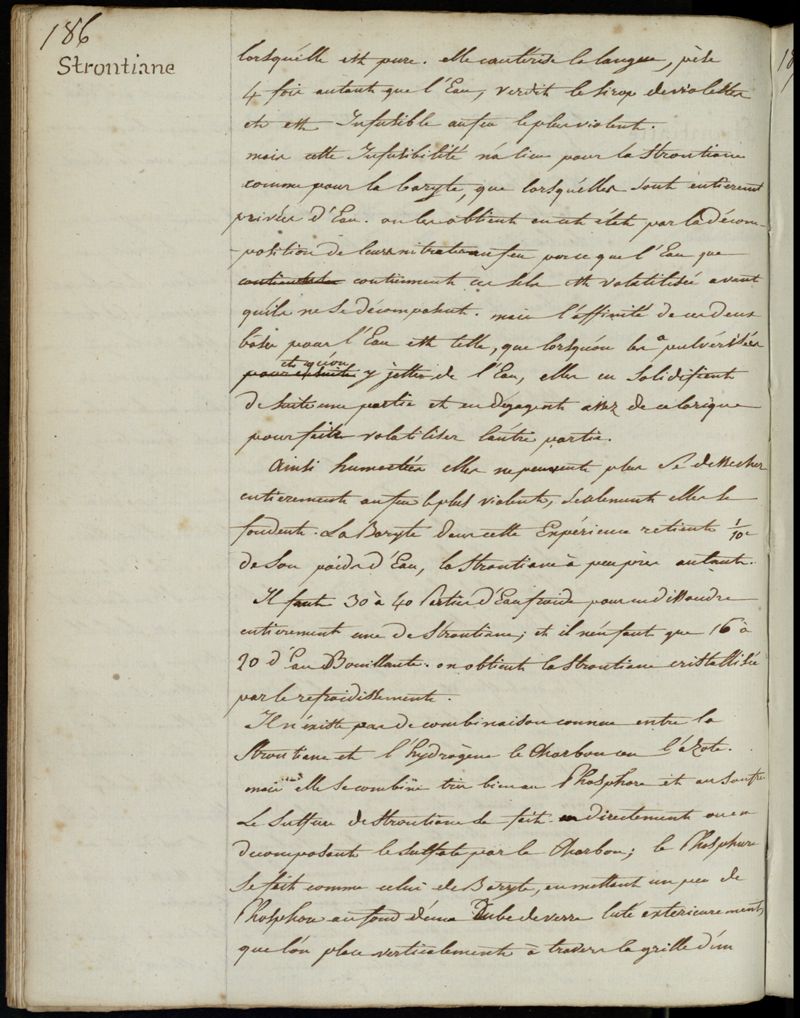 186
Strontiane
lorsqu'elle est pure. elle cautérise la langue, pèse
4 fois autant que l'Eau, verdit le sirop de violettes
et est Infusible au feu le plus violent.
mais cette Infusibilité n'a lieu pour la Strontiane
comme pour la baryte, que lorsqu'elles sont entierement
privées d'Eau. on les obtient en cet état par la décom-
-position de leurs nitrates au feu parce que l'Eau que
contiennent ces sels est volatilisée avant
qu'ils ne se décomposent. mais l'affinité de ces deux
bases pour l'Eau est telle, que lorsqu'on les a pulvérisées
et qu'on
pour ensuite y jetter de l'Eau, elles en Solidifient
de suite une partie et en dégagent assez de calorique
pour faire volatiliser l'autre partie.
Ainsi humectées elles ne peuvent plus se dessecher
entierement au feu le plus violent, seulement elles se
fondent. La Baryte dans cette Expérience retient 1/10e
de son poids d'Eau, la Strontiane à peu près autant.
Il faut 30 à 40 Parties d'Eau froide pour en dissoudre
entierement une de Strontiane; et il n'en faut que 16 à
20 d'Eau Bouillante. on obtient la Strontiane cristallisée
par le refroidissement.
Il n'existe pas de combinaison connue entre la
Strontiane et l'hydrogène le Charbon ou l'azote.
mais elle se combine très bien au Phosphore et au soufre
Le Sulfure de Strontiane se fait directement ou en
decomposant le sulfate par le Charbon; le Phosphure
se fait comme celui de Baryte, en mettant un peu de
Phosphore au fond d'une Tube de verre luté exterieurement
que l'on place verticalement à travers la grille d'un